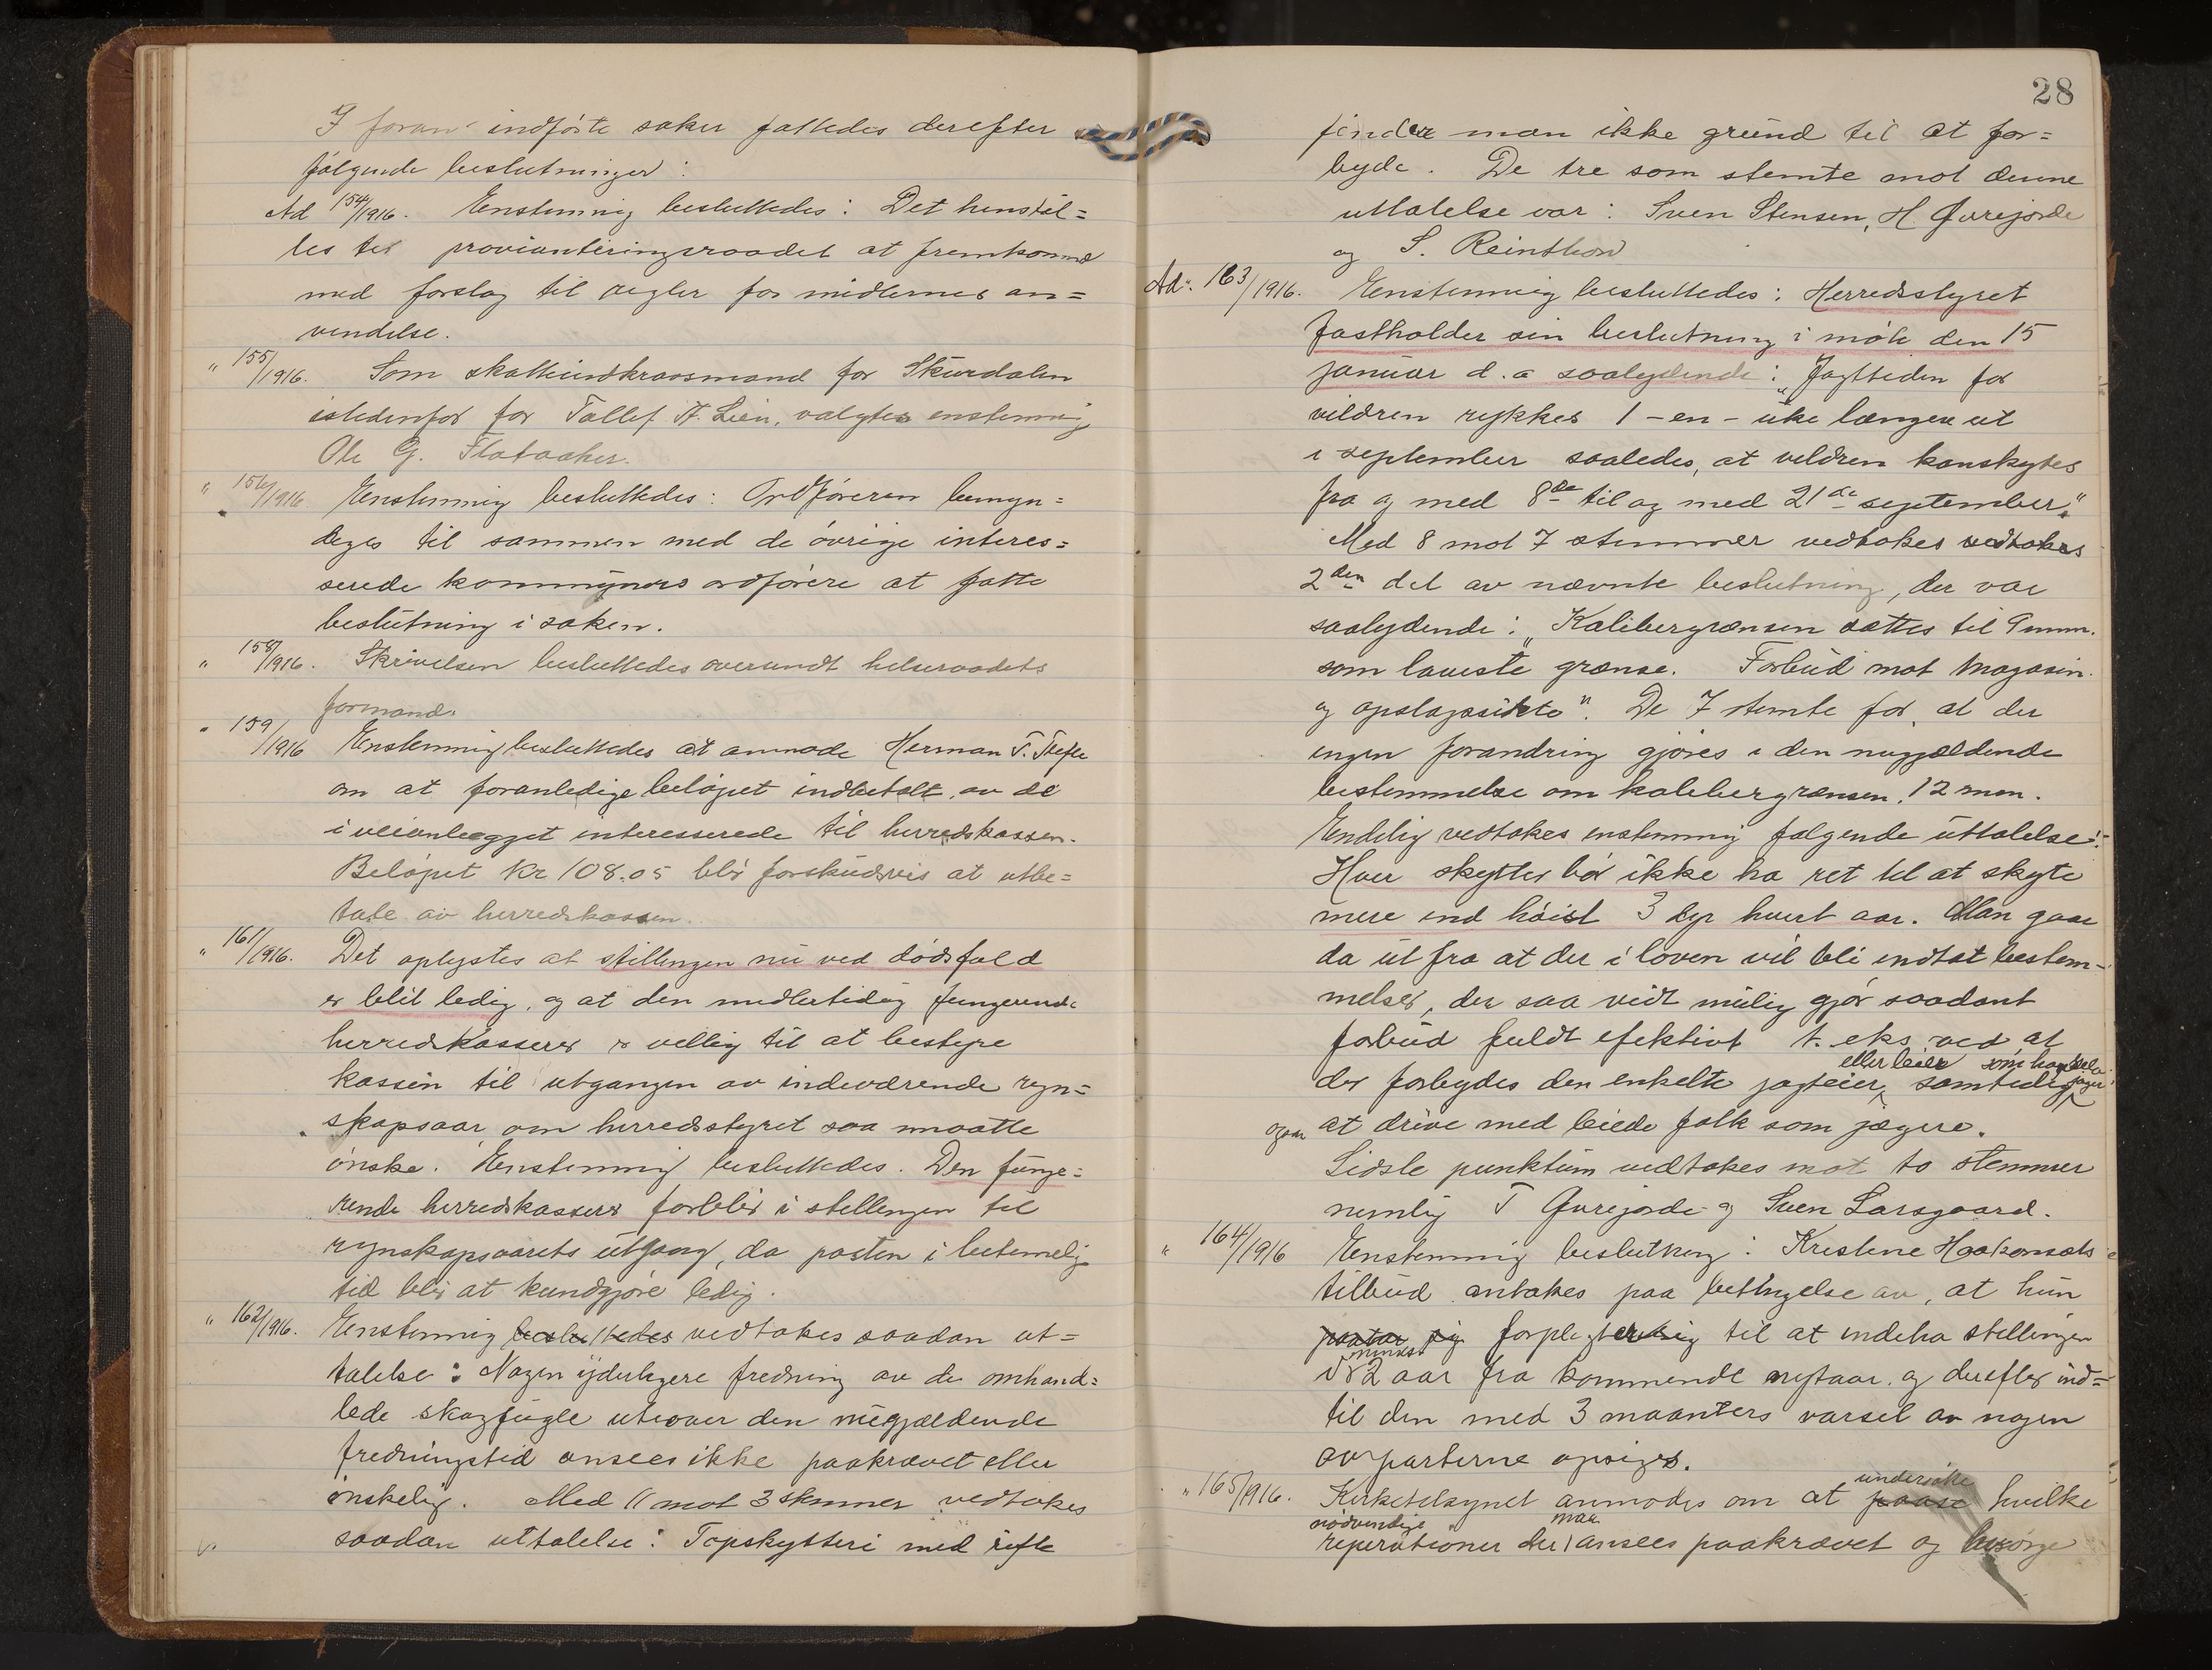 I foran indførte saker fattedes derefter
følgende beslutninger:
Ad 154/1916. Enstemmig besluttedes: Det henstil=
les til provianteringsraadet at fremkomme
med forslag til regler for midlernes an=
vendelse.
" 155/1916. Som skatteindkrævsmand for Skurdalen
istedenfor for Tollef H. Lien, valgtes enstemmig
Ole G. Flataaker.
" 156/1916 Enstemmig besluttedes: Ordføreren bemyn=
deges til sammen med de øvrige interes=
serede kommuners ordførere at fatte
beslutning i saken.
" 158/1916. Skrivelsen besluttedes oversendt helseraadets
formand.
" 159/1916 Enstemmig besluttedes at anmode Herman T.
om at foranledige beløpet indbetalt av de
i veianlegget interesserede til herredskassen.
Beløpet kr 108.05 blir forskudsvis at utbe=
tale av herredskassen.
" 161/1916. Det oplystes at stillingen nu ved dødsfald
er blit ledig, og at den midlertidig fungerende
herredskasserer er villig til at bestyre
kassen til utgangen av indeværende regn=
skapsaar om herredsstyret saa maatte
ønske. Enstemmig besluttedes. Den funge=
rende herredskasserer forblir i stillingen til
regnskapsaarets utgang, da posten i betimelig
tid blir at kundgjøre ledig.
" 162/1916. Enstemmig besluttedes vedtokes saadan ut=
talelse: Nogen yderligere fredning av de omhand=
lede skogfugle utover den nugjældende
fredningstid ansees ikke paakrævet eller
ønskelig. Med 11 mot 3 stemmer vedtokes
saadan uttalelse: Topskytteri med rifle
28
finder man ikke grund til at for=
byde. De tre som stemte mot denne
uttalelse var: Sven Stensen, H. Gurejorde
og S. Reinthon
Ad". 163/1916. Enstemmig besluttedes: Herredsstyret
fastholder sin beslutning i møte den 15
januar d.a saalydende: "Jagttiden for
vildren rykkes 1 - en - uke længere ut
i september saaledes, at vildren kan skytes
fra og med 8de til og med 21de september."
Med 8 mot 7 stemmer vedtokes vedtokes
2den del av nævnte beslutning, der var
saalydende: "Kalibergrænsen sættes til 9 mm.
som laveste grænse. Forbud mot magasin
og opslagssikte". De 7 stemte for, at der
ingen forandring gjøres i den nugjældende
bestemmelse om kalibergrænsen. 12 mm.
Endelig vedtokes enstemmig følgende uttalelse:
Hver skytter bør ikke ha ret til at skyte
mere end høist 3 dyr hvert aar. Man gaar
da ut fra at der i loven vil bli indtat bestem-
melser, der saa vidt mulig gjør saadant
forbud fuldt efektivt t. eks. ved at
eller leier som han selv
der forbydes den enkelte jagteier, samtidig jager
ogsaa at drive med leiede folk som jægere.
Sidste punktum vedtokes mot to stemmer
nemlig T Gurejorde og Sven Larsgaard.
" 164/1916 Enstemmig beslutning: Kristine Haakonsets
tilbud antakes paa betingelse av, at hun
paatar sig forplegter sig til at indeha stillingen
mindst
i 2 aar fra kommende nytaar og derefter ind=
til den med 3 maanters varsel av nogen
av parterne opsiges.
undersøke
" 165/1916. Kirketilsynet anmodes om at paase hvilke
nødvendige maa
reperationer der ansees paakrævet og besørge